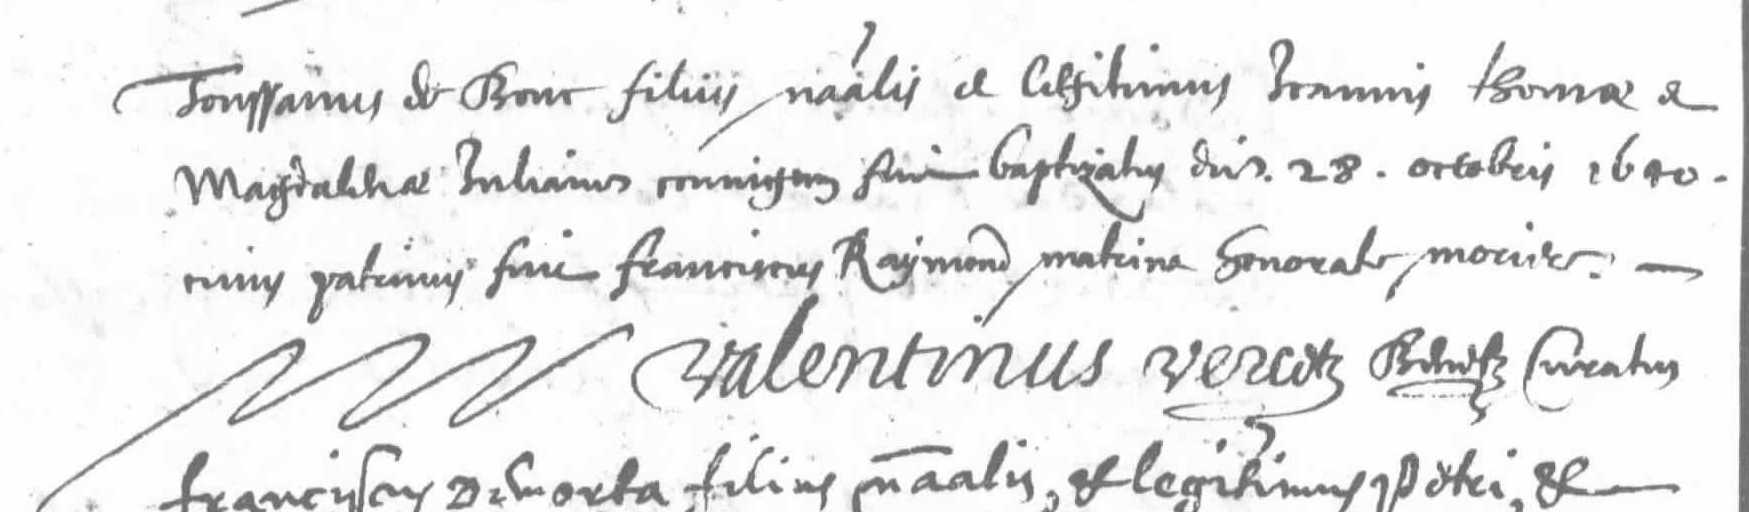 Toussanus de Bouc filius naālis et legitimus Joannis thomæ et
Magdalenæ Julianis coniugem fuit baptizatus die. 28. octobris 1640.
cuius patrinus fuit franciscus Raymond matrina honorate
valentinus curatus
franciscus filius nāalis, et legitimus petri, et